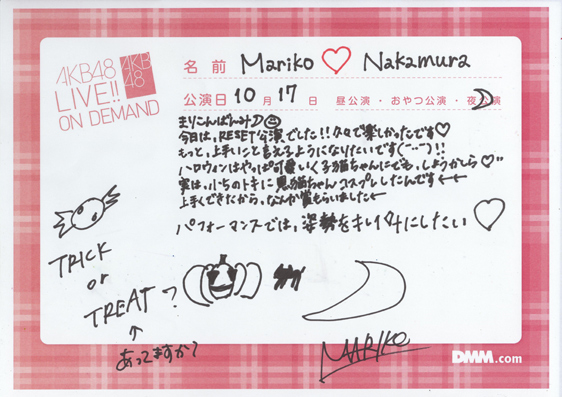 AKB48
LIVE!!
ON DEMAND
AKB
48
名前 Mariko ♡ Nakamura
公演日 10月17日 昼公演・おやつ公演・夜公演
まりこんばんみ♪
今日は、RESET公演でした!!久々で楽しかったです♡
もっと、上手いこと言えるようになりたいです(ー̈ー)!!
ハロウィンはやっぱ可愛いく子猫ちゃんにでも、しようかしら♡"
実は、小6のトキに黒猫ちゃんコスプレしたんです←←
上手くできたから、なんか賞もらいました←
パフォーマンスでは、姿勢をキレイにしたい♡
TRICK
or
TREAT?
↑
あってますか?
MARIKO
DMM.com